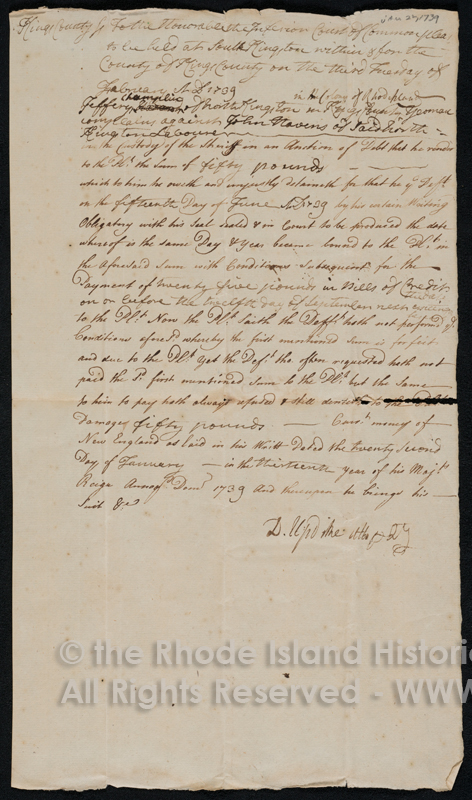 Jan 22 1739
Kings County Ss To the Honorable the Inferiour Court of Common pleas
to be held at South Kingston within & for the
County of Kings County on the third Tuesday of
February A:D 1739
in the Colony of Rhode Island
Jeffery Champlin of North Kingston in Kings County Yeoman
complains against John Havens of Said North
Kingston Labourer
in the Custody of the Sheriff in an Action of Debt that he render
to the Plt. the Sum of fifty pounds
which to him he oweth and unjustly detaineth for that he ye Deft.
on the fifteenth Day of June A:D 1739 by his certain Writing
Obligatory with his Seal Sealed & in Court to be produced the date
whereof is the Same Day & Year became bound to the Plt. in
the Aforesaid Sum with Conditions Subsequent for the
Payment of twenty five pounds in Bills of Credit
on or before the twelfth day of September next
to the Plt. Now the Plt. saith the Defft. hath not performed ye
Conditions aforesd. whereby the first mentioned Sum is forfeit
and due to the Plt. Yet the Deft. tho often requested hath not
paid the Sd. first mentioned Sum to the Plt. but the Same
to him to pay hath always refused & still denieth to the
Damages fifty pounds — Curt. money of
New England as laid in his Writt Dated the twenty Second
Day of January — in the thirteenth year of his Majts.
Reign Annoq. Dom. 1739 And thereupon he brings his
Suit &c
D. Updike Atto
© the Rhode Island Histori
All Rights Reserved - WWW